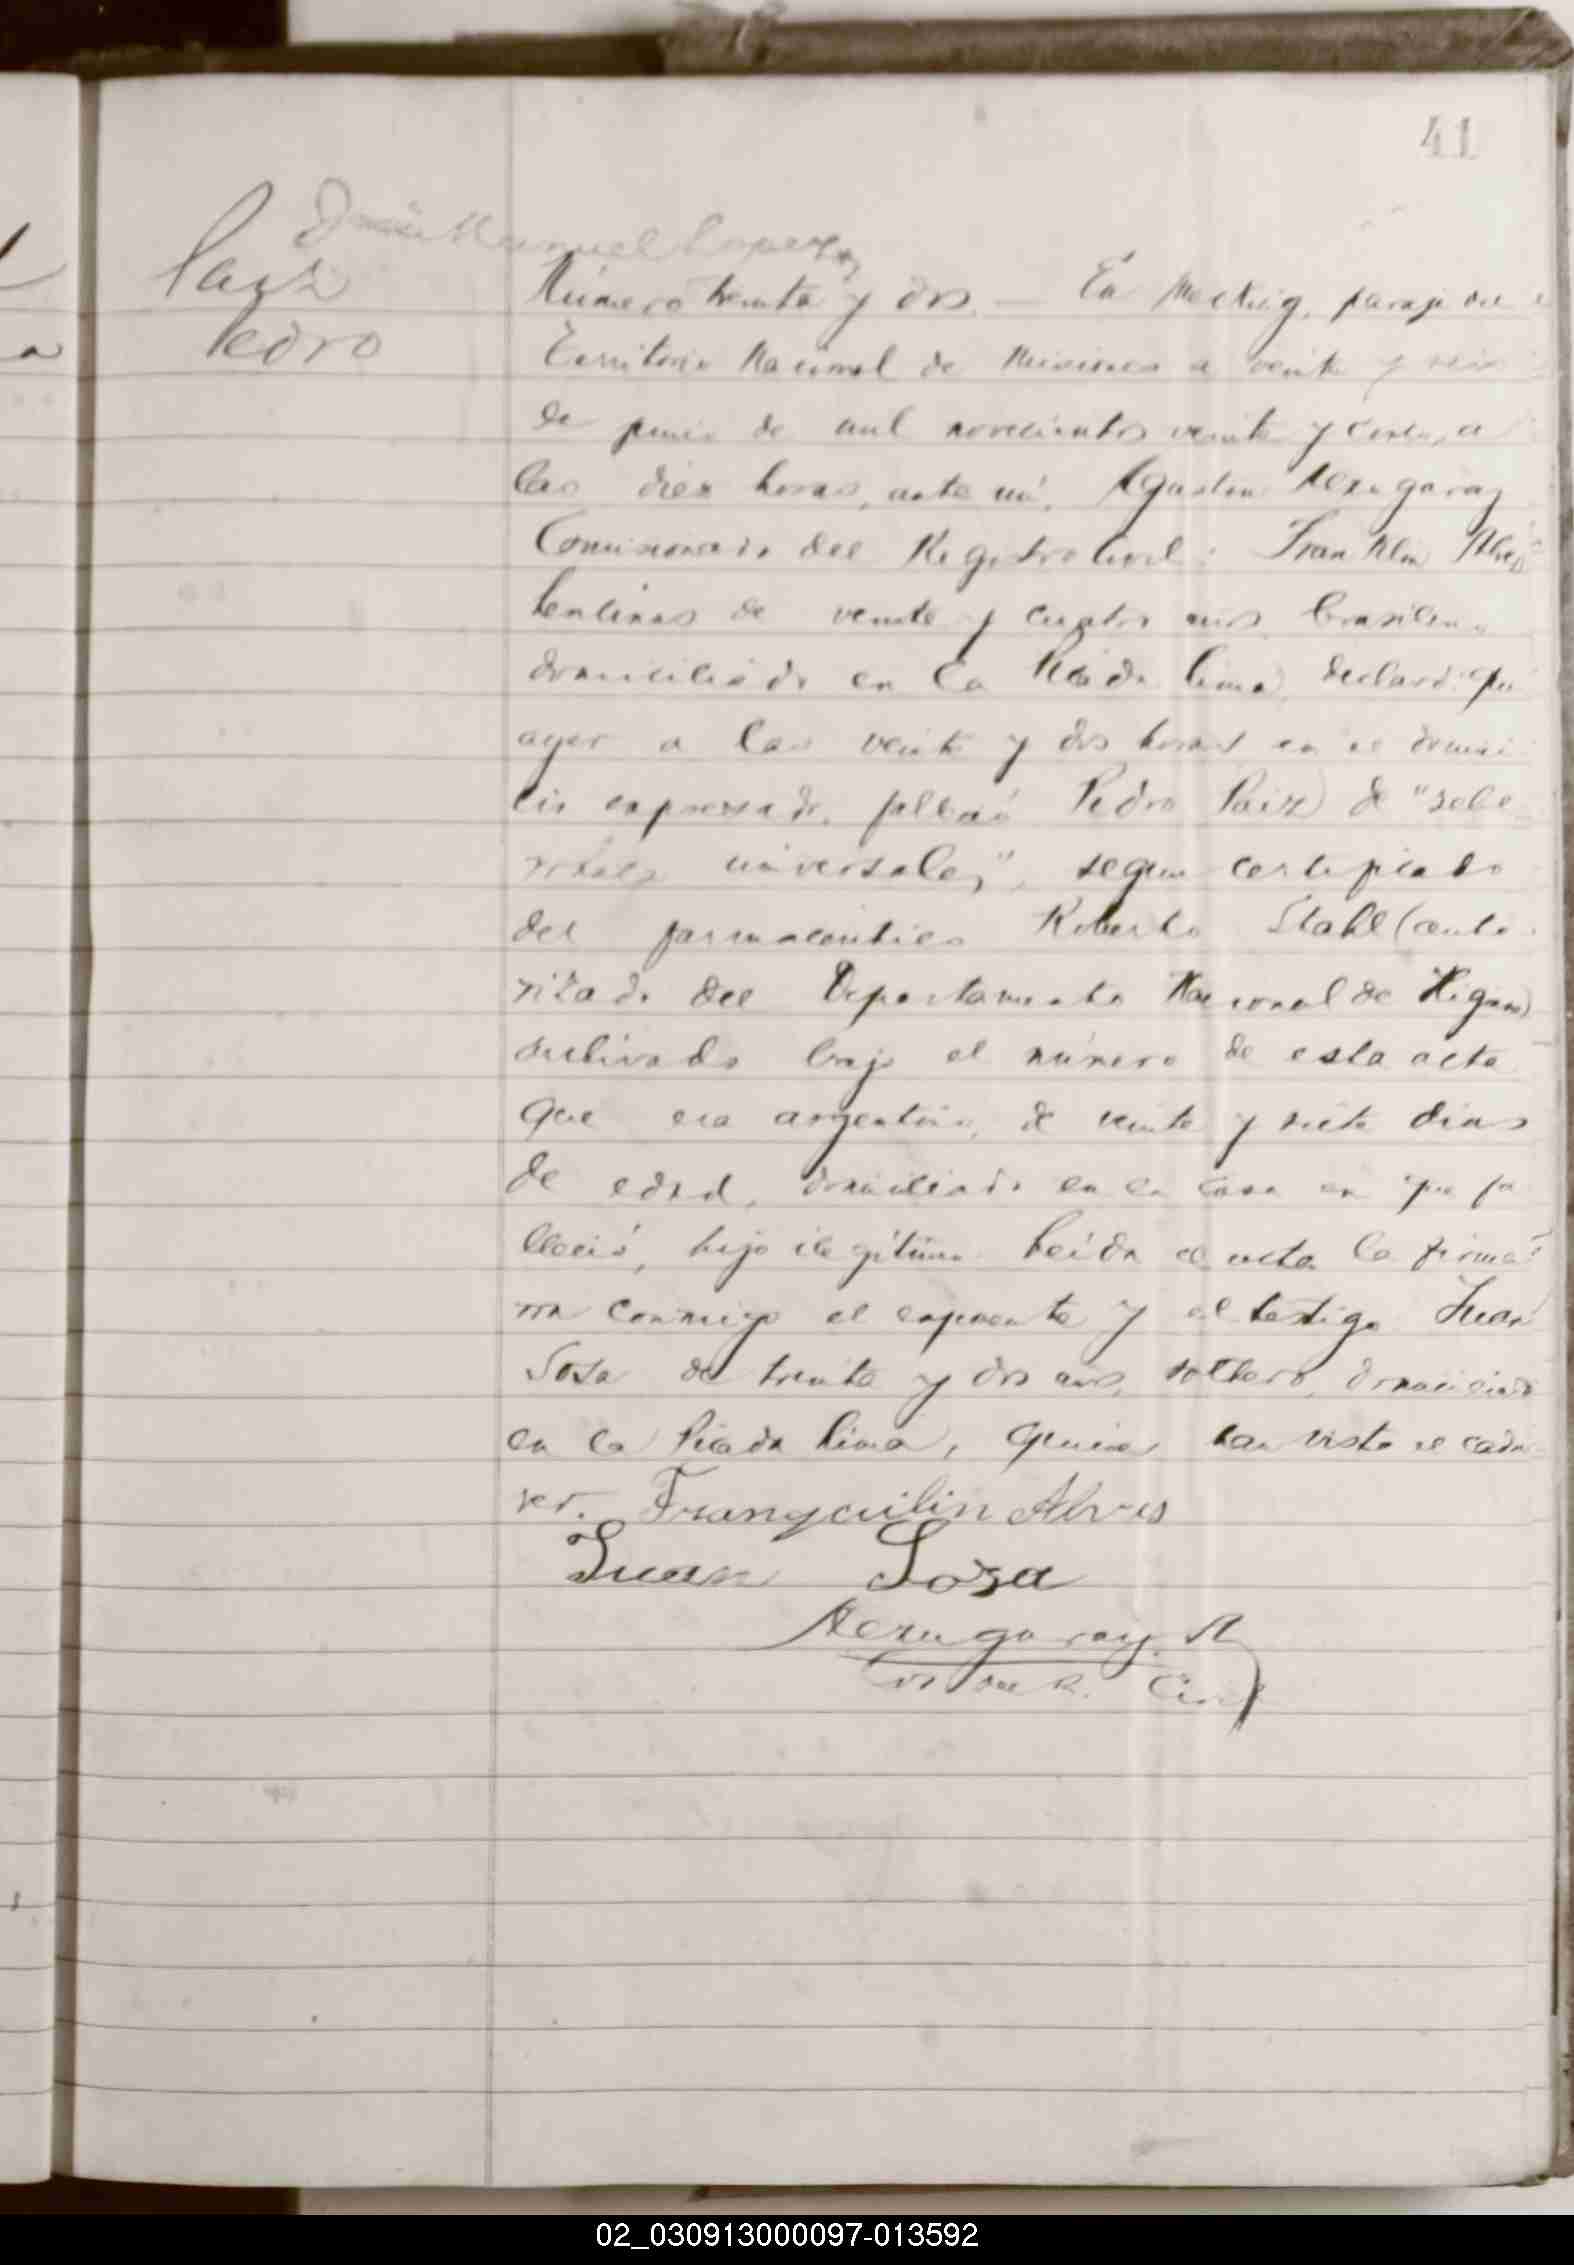 41
Manuel Lopez
Paiz
Pedro
Número treinta y dos. — En Mecking, paraje del
Territorio Nacional de Misiones a veinte y seis
de junio de mil novecientos veinte y a
las diez horas, ante mi, Agustin Aezagaray
Comisionado del Registro Civil: Franklin Alves
de veinte y cuatro años, brasilero
domiciliado en la Picada Lima, declaró que
ayer a las veinte y dos horas en el domici
lio expresado, falleció Pedro Paiz de "
universales", segun certificado
del farmaceutico Roberto Stahl (auto
rizado del Departamento Nacional de Higiene)
archivado bajo el número de esta acta
Que era argentino, de veinte y siete dias
de edad, domiciliado en la casa en que fa
lleció, hijo ilegítimo. Leída el acta la firma
ron conmigo el exponente y el testigo Juan
Sosa de treinta y dos años, soltero, domiciliado
en la Picada Lima, quienes han visto el cada
ver. Franquilin Alves
Juan Soza
Aezagaray. A
del R. Civil
02_030913000097-013592